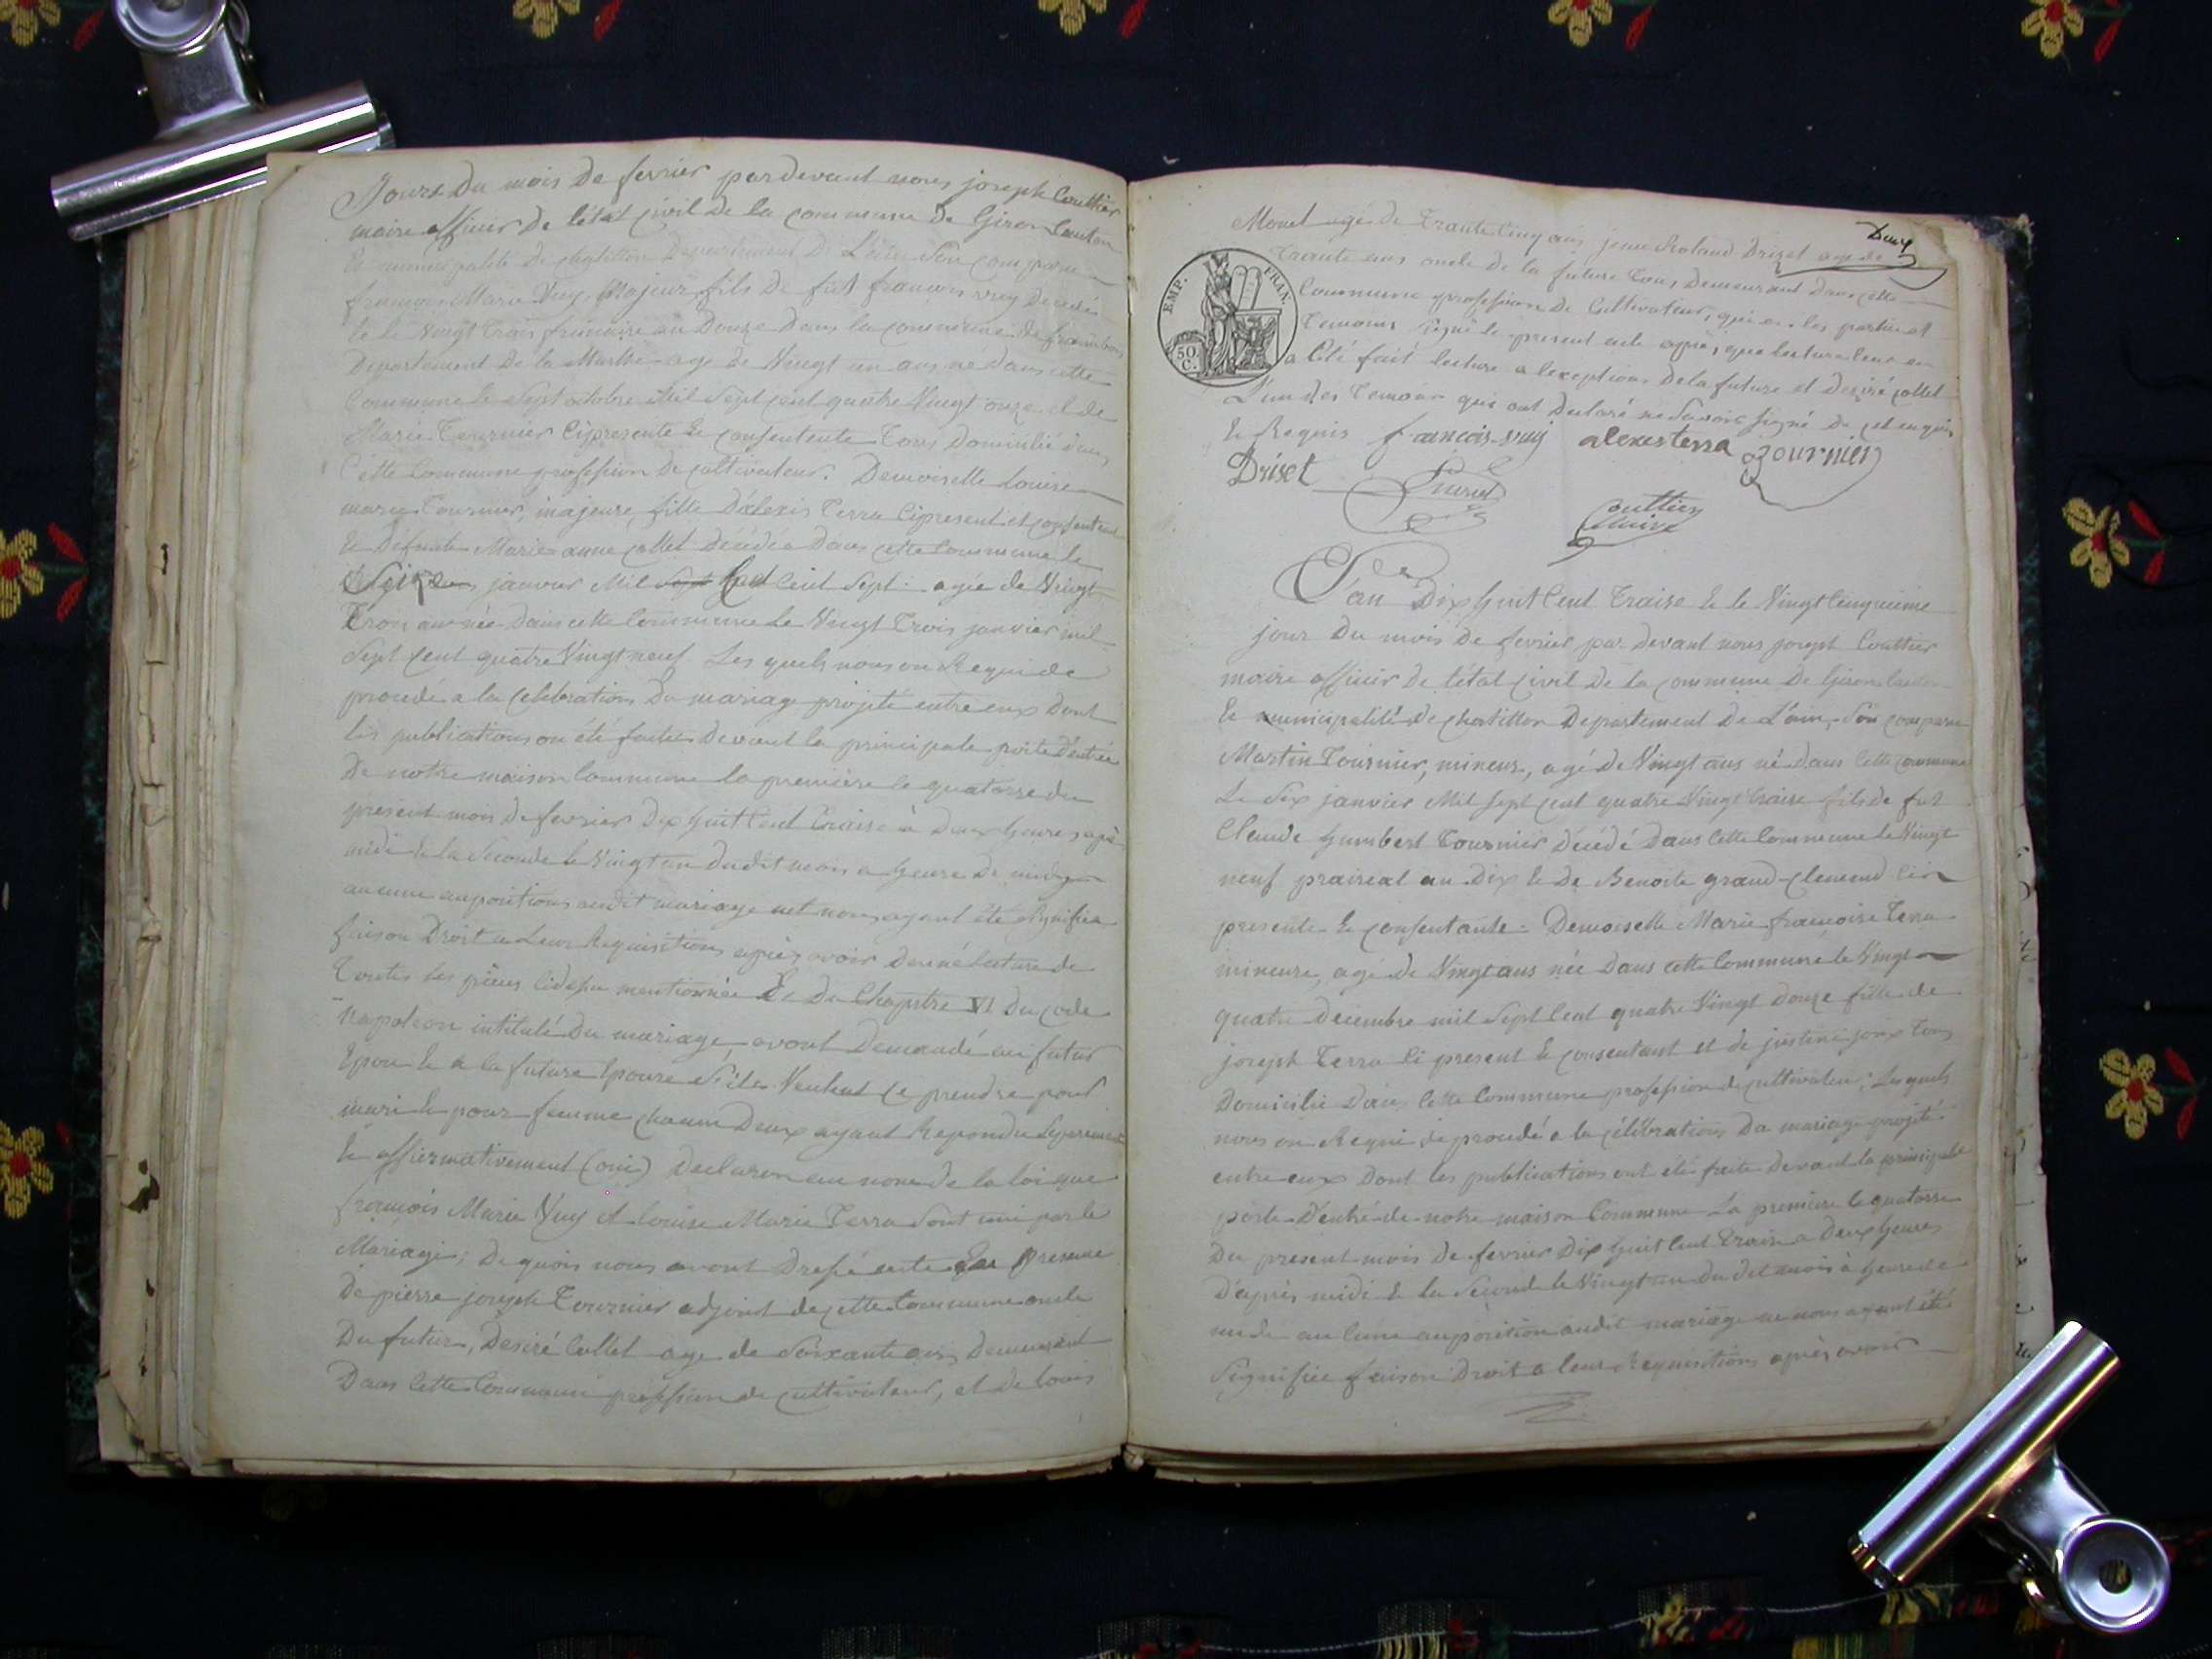 Jours du mois de fevrier pardevant nous joseph Couttier
maire officier de l'état civil de la commune de Giron Canton
et municipalité de chatillon Departement de L'ain son comparu
françois Marie Vuy, Majeur fils de fut françois vuy decedé
le le Vingt trois frimaire an Douze dans la commune de
Departement de la Murthe age de Vingt un ans né dans cette
Commune le Sept octobre Mil Sept cent quatre Vingt onze et de
Marie Tournier Cipresente & consentente Tous Domicilié dans
Cette Commune profession de cultivateur. Demoiselle louise
marie Tournier, majeure fille D'alexis Terra Cipresent et consentant
& Defunte Marie anne collet décédée Dans cette Commune le
janvier Mil Sept huit Cent Sept agée de Vingt
Trois an née dans cette Commune le Vingt Trois janvier mil
Sept cent quatre Vingt neuf. Les quels nous on Requi de
procedé a la celebration du mariage projeté entre eux Dont
les publications on été faites devant la principale porte d'entrée
De notre maison Commune la premiere le quatorse du
present mois de fevrier dix huit Cent Traise à deux heures apré
midi & la Seconde le Vingt un dudit mois a heure de midy
aucune auposition audit mariage net nous ayant été Signifiée
faison Droit a Leur Requisitions après avoir donné lecture de
Toutes les pièces cidessu mentionnée & Du Chapitre VI Du code
napoleon intitulé Du mariage, avont Demandé au futur
Epou & a la future Epouse s'iles Veulent ce prendre pour
mari & pour femme chacun Deux ayant Repondu Separement
& affirmativement (oui) Declaron au nom de la loi que
françois Marie Vuy et louise Marie Terra Sont uni par le
Mariage; De quoi nous avont Dressé acte En presence
De pierre joseph Tournier adjoint de cette Commune oncle
Du futur, Desiré Collet age de Soixante ans Demeurant
Dans Cette Commune profession de cultivateur, et de louis
Deux
Monet agé de Trante Cinq ans jean Roland Driset age de
Trante ans oncle de la future Tous Demeurant Dans cette
Commune profession de Cultivateur, qui on les partie et
Temoins Signé le present acte après que lecture leur en
a Eté fait lecture a l'exeption De la future et desiré collet
L'un des Temoin qui ont Declaré ne Savoir Signé De cet enquis
& Requis françois vuy alexesterra Tournier
Driset Monet
Couttier
Maire
EMP. FRAN.
50
C.
L'an Dix huit Cent Traise & le Vingt Cinquieme
jour Du mois De fevrier par devant nous joseph Couttier
maire officier de l'état civil de la commune de Giron Canton
& municipalité de chatillon Departement de L'ain, Son comparu
Martin Tournier, mineur, agé de Vingt ans né dans Cette commune
Le Six janvier Mil Sept cent quatre Vingt Traise fils de fut
Claude humbert Tournier Décédé Dans Cette Commune le Vingt
neuf praireal an Dix & de Benoite grand clement Ci
presente & consentante. Demoiselle Marie françoise Terra
mineure, agé de Vingt ans née Dans cette Commune le Vingt
quatre decembre mil Sept Cent quatre Vingt Douze fille de
joseph Terra Ci present & consentant et de justine joux Tous
Domicilié Dans Cette Commune profession de cultivateur, Lesquels
nous on Requi de procedé a la célébration Du mariage projeté
entre eux Dont les publications ont été faite devant la principale
porte D'entré de notre maison Commune La premiere le quatorse
Du present mois de fevrier Dix huit Cent Traise a Deux heures
D'après midi & la Seconde le Vingt un du dit mois à heure de
midi aucune auposition audit mariage ne nous ayant été
Signifiée faison Droit a leur Requisitions après avoir